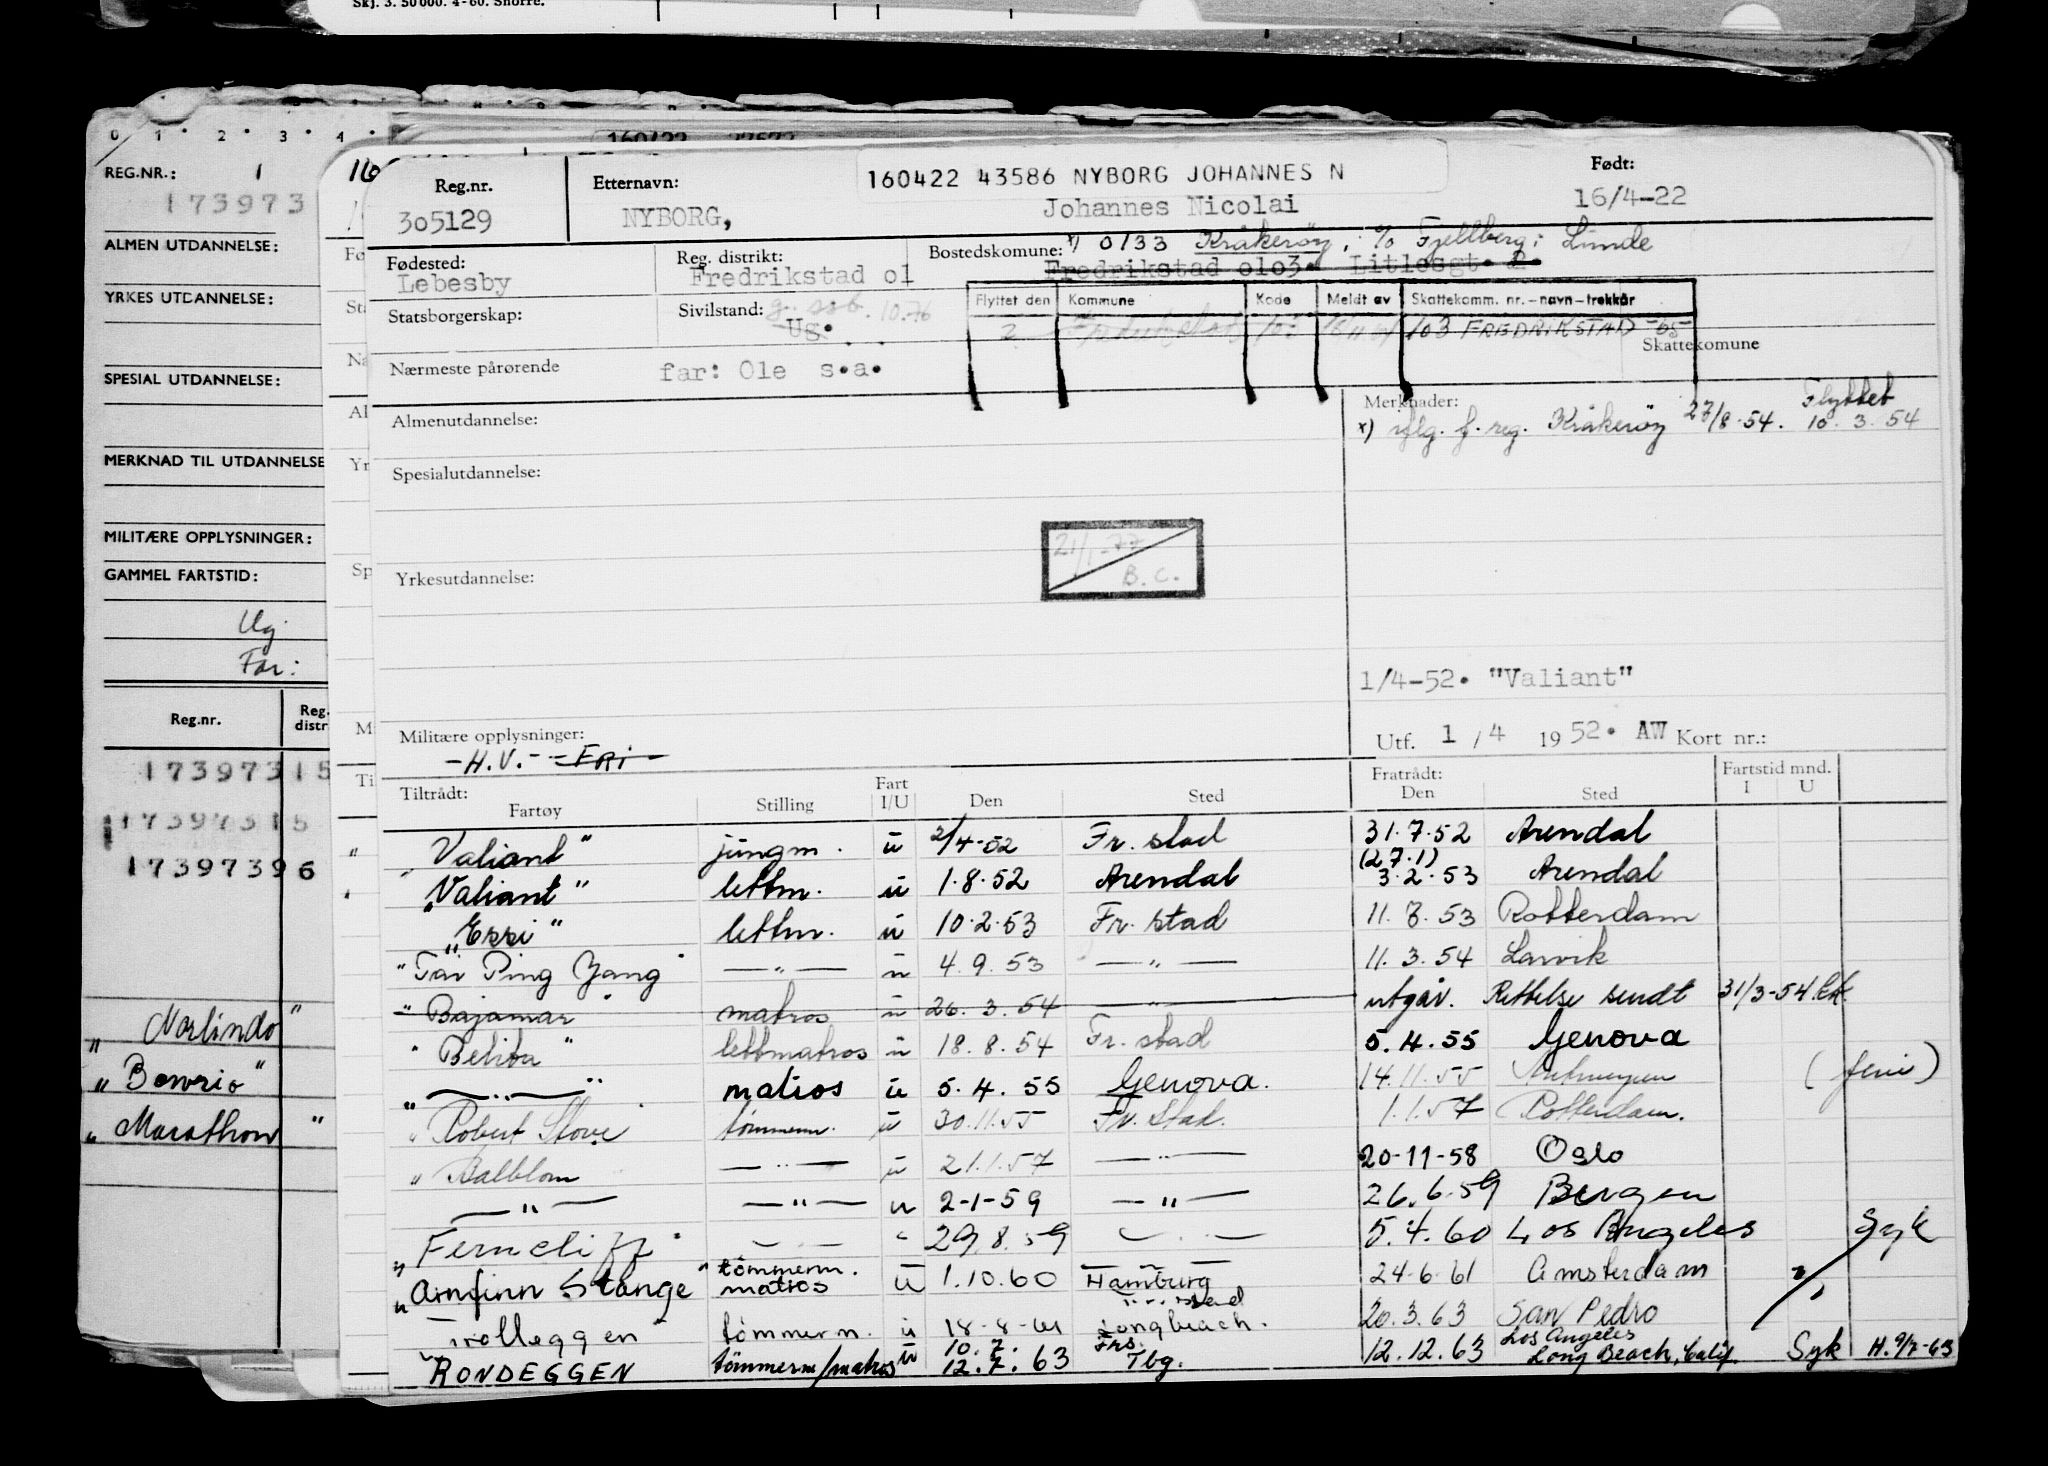 Skj. 3. 50000. 4-60. Snorre.
0 1 2 3 4
REG.NR.: 1
173973
ALMEN UTDANNELSE:
YRKES UTDANNELSE:
SPESIAL UTDANNELSE:
MERKNAD TIL UTDANNELSE
MILITÆRE OPPLYSNINGER:
GAMMEL FARTSTID:
Ug.
Far:
Reg.nr. Reg. distr
17397315
17397315
17397396
"Norlindo"
"Bowrio"
"Marathon"
160422 43586 NYBORG JOHANNES N
Reg.nr. Etternavn: Født:
305129 NYBORG, Johannes Nicolai 16/4-22
Fødested: Reg. distrikt: Bostedskomune: x) 0133 Kråkerøy, c/o Fjellberg, Lunde
Lebesby Fredrikstad 01 Fredrikstad 0103. Litlesgt. 2.
Statsborgerskap: Sivilstand: Ug.
Flyttet den Kommune Kode Meldt av Skattekomm. nr.-navn-trekkår
103 FREDRIKSTAD -65-
Skattekomune
Nærmeste pårørende far: Ole s.a.
Almenutdannelse: Merknader: Flyttet
x) iflg. f. reg. Kråkerøy 27/8-54. 10.3.54
Spesialutdannelse:
21/1-77
B.C.
Yrkesutdannelse:
1/4-52. "Valiant"
Militære opplysninger: Utf. 1/4 1952. AW Kort nr.:
-H.V.- -FRI-
Tiltrådt: Fartøy Stilling Fart I/U Den Sted Fratrådt: Den Sted Fartstid mnd. I U
"Valiant" jungm. u 2/4-52 Fr.stad 31.7.52 Arendal
"Valiant" lettm. u 1.8.52 Arendal (27.1) 3.2.53 Arendal
"Essi" lettm. u 10.2.53 Fr.stad 11.8.53 Rotterdam
"Tai Ping Yang" —"— u 4.9.53 —"— 11.3.54 Larvik
"Bajamar" matros u 26.3.54 —"— utgår. Rettelse sendt 31/3-54
"Belita" lettmatros u 18.8.54 Fr.stad 5.4.55 Genova
"—"—" matros u 5.4.55 Genova. 14.11.55 Antwerpen (ferie)
"Robert Stove" tømmerm. u 30.11.55 Fr.stad. 1.1.57 Rotterdam.
"Balblom —"— u 21.1.57 —"— 20-11-58 Oslo
—"— —"— u 2-1-59 —"— 26.6.59 Bergen
"Ferncliff" —"— " 29.8.59 —"— 5.4.60 Los Angeles Syk
"Arnfinn Stange" tömmerm. matros u 1.10.60 Hamburg 24-6-61 Amsterdam
"Trolleggen" tømmerm. u 18-8-61 Longbeach. 20.3.63 San Pedro
RONDEGGEN tömmerm/matros u 10.7. 12.7.63 Frs. Tbg. 12.12.63 Los Angeles Long Beach, Calif. Syk H. 9/7-63